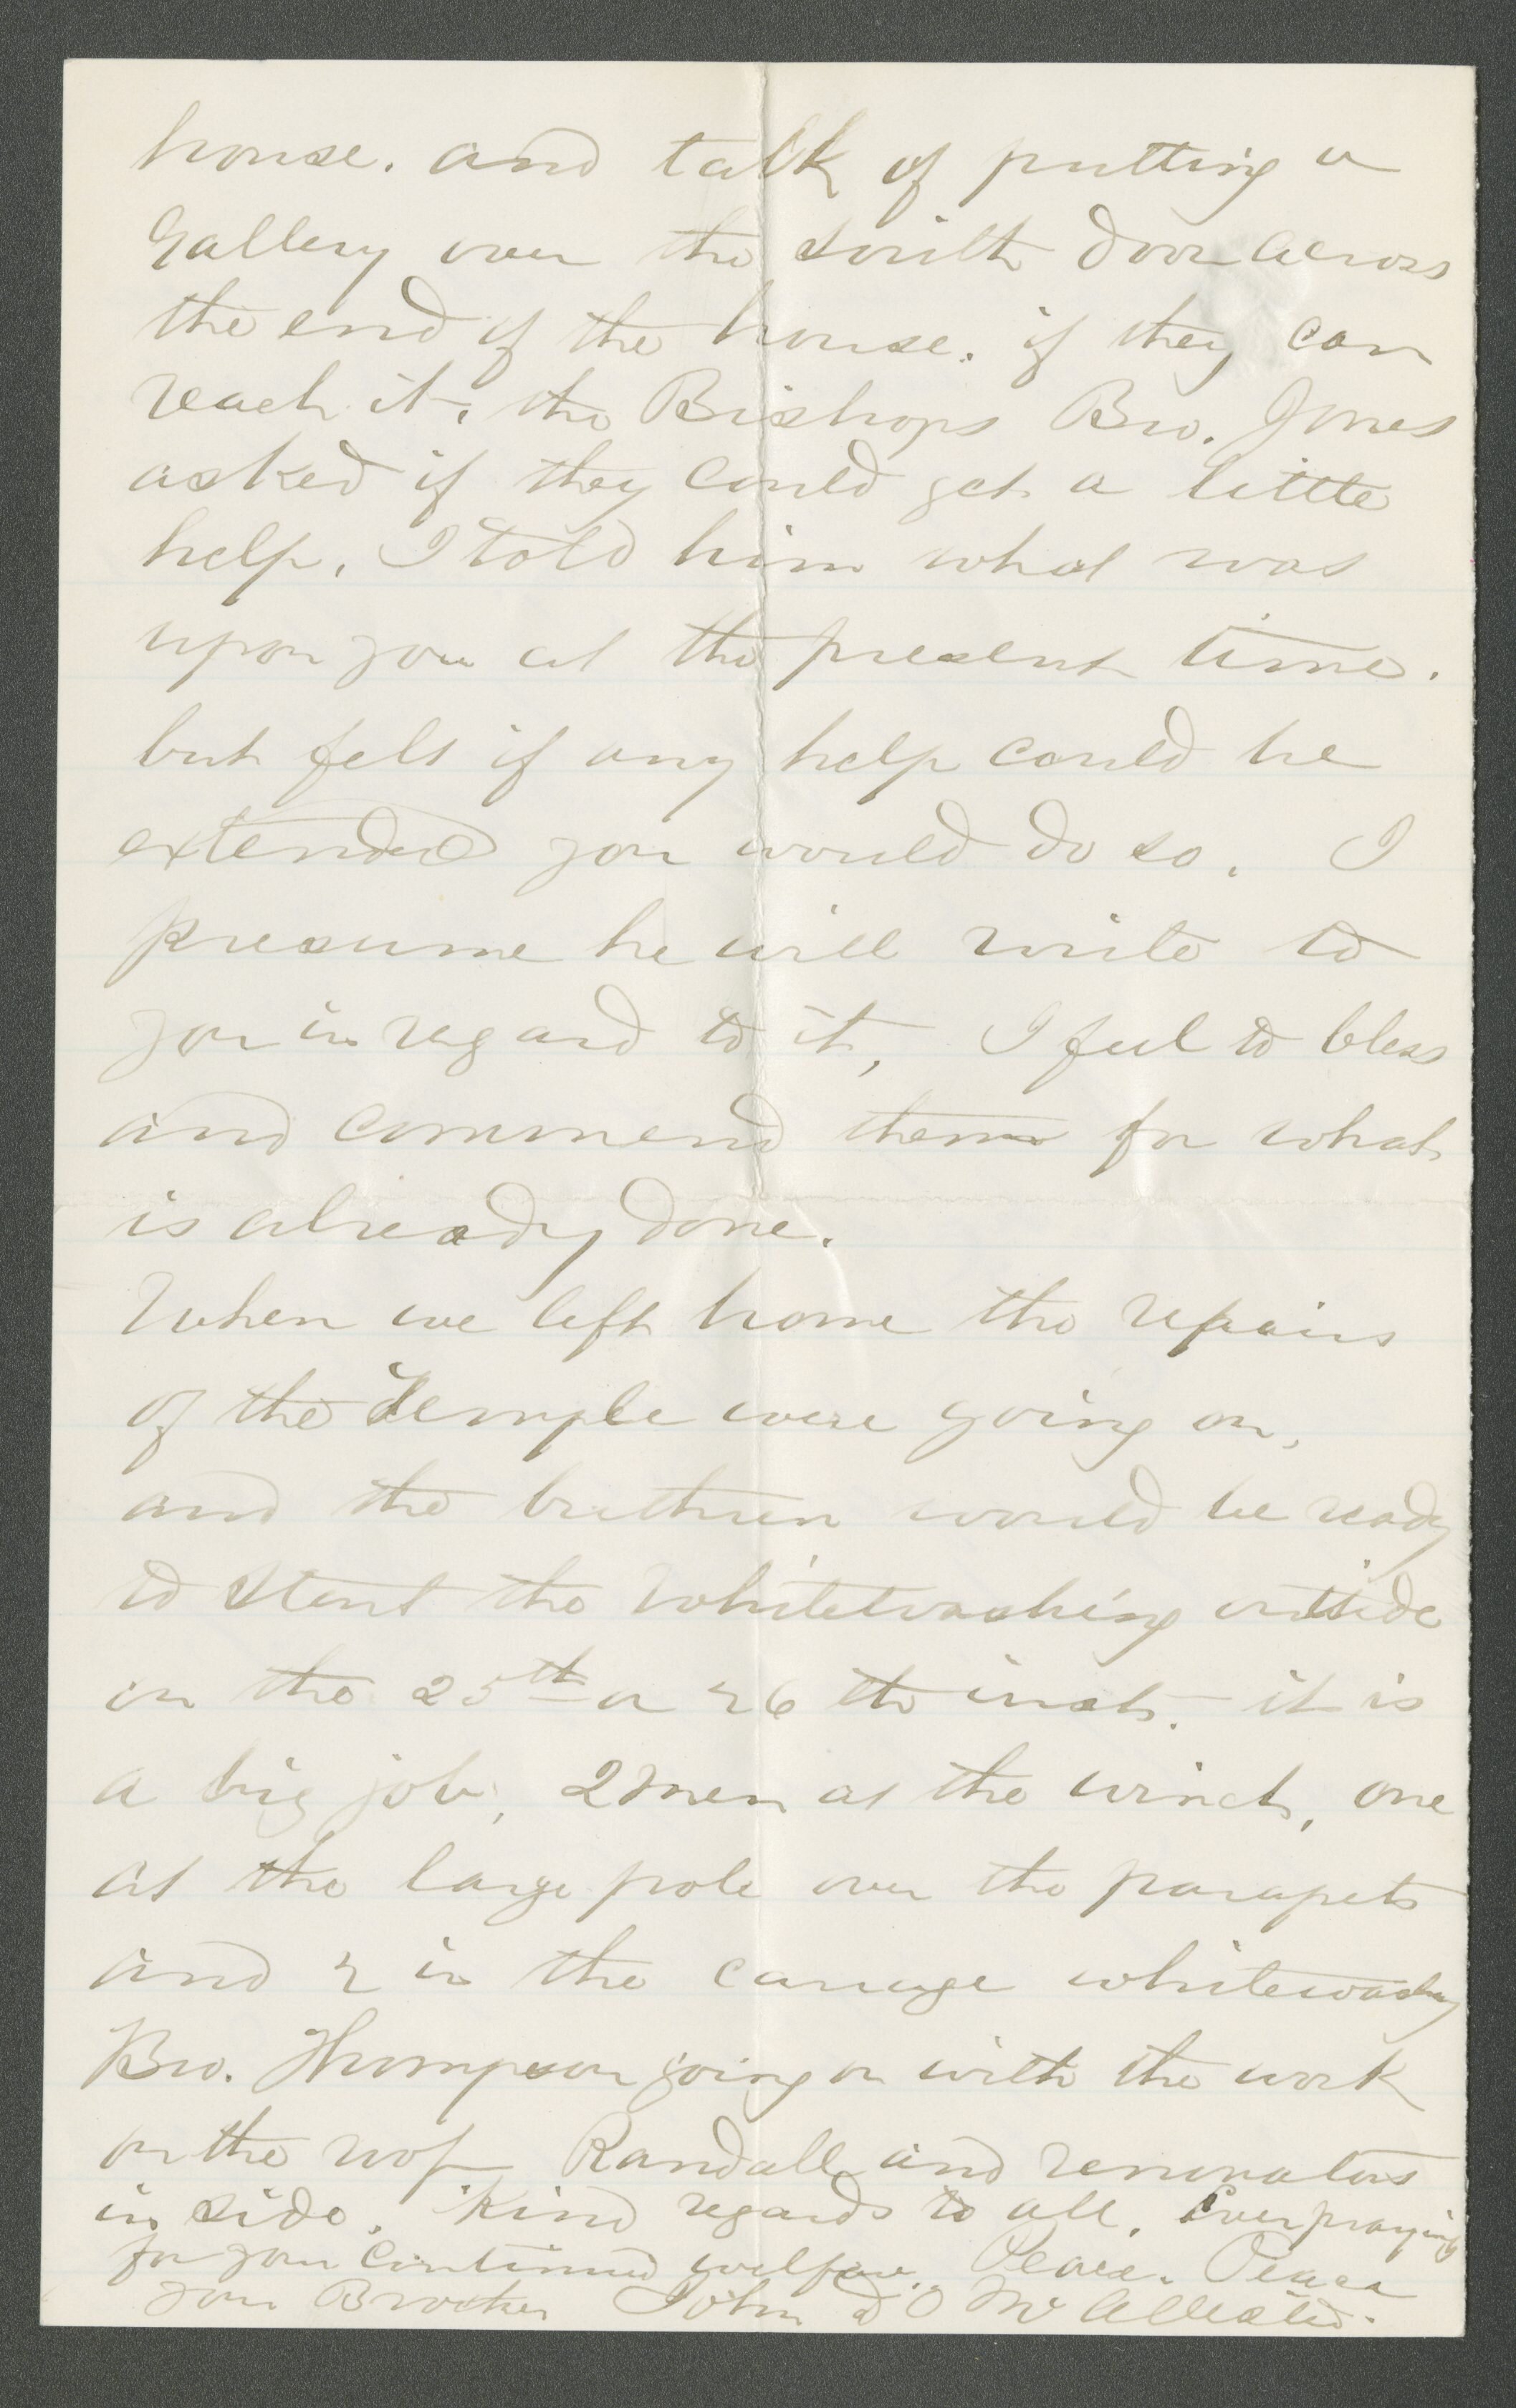 house. and talk of putting a
Gallery over the south door across
the end of the house. if they can
reach it, the Bishops Bro. Jones
asked if they could get a little
help, I told him what was
upon you at the present time.
but felt if any help could be
extended you would do so. I
presume he will write to
you in regard to it, I feel to bless
and commend them for what
is already done.
When we left home the repairs
of the Temple were going on,
and the brethren would be ready
to start the whitewashing outside
on the 25th or 26 th inst. it is
a big job, 2 men at the winch, one
at the large pole over the parapets
and 2 in the carriage whitewashing
Bro. Thompson going on with the work
on the roof Randall and renovators
in side. Kind regards to all. Ever praying
for your continued welfare. Peace. Peace
your Brother John D T McAllester.